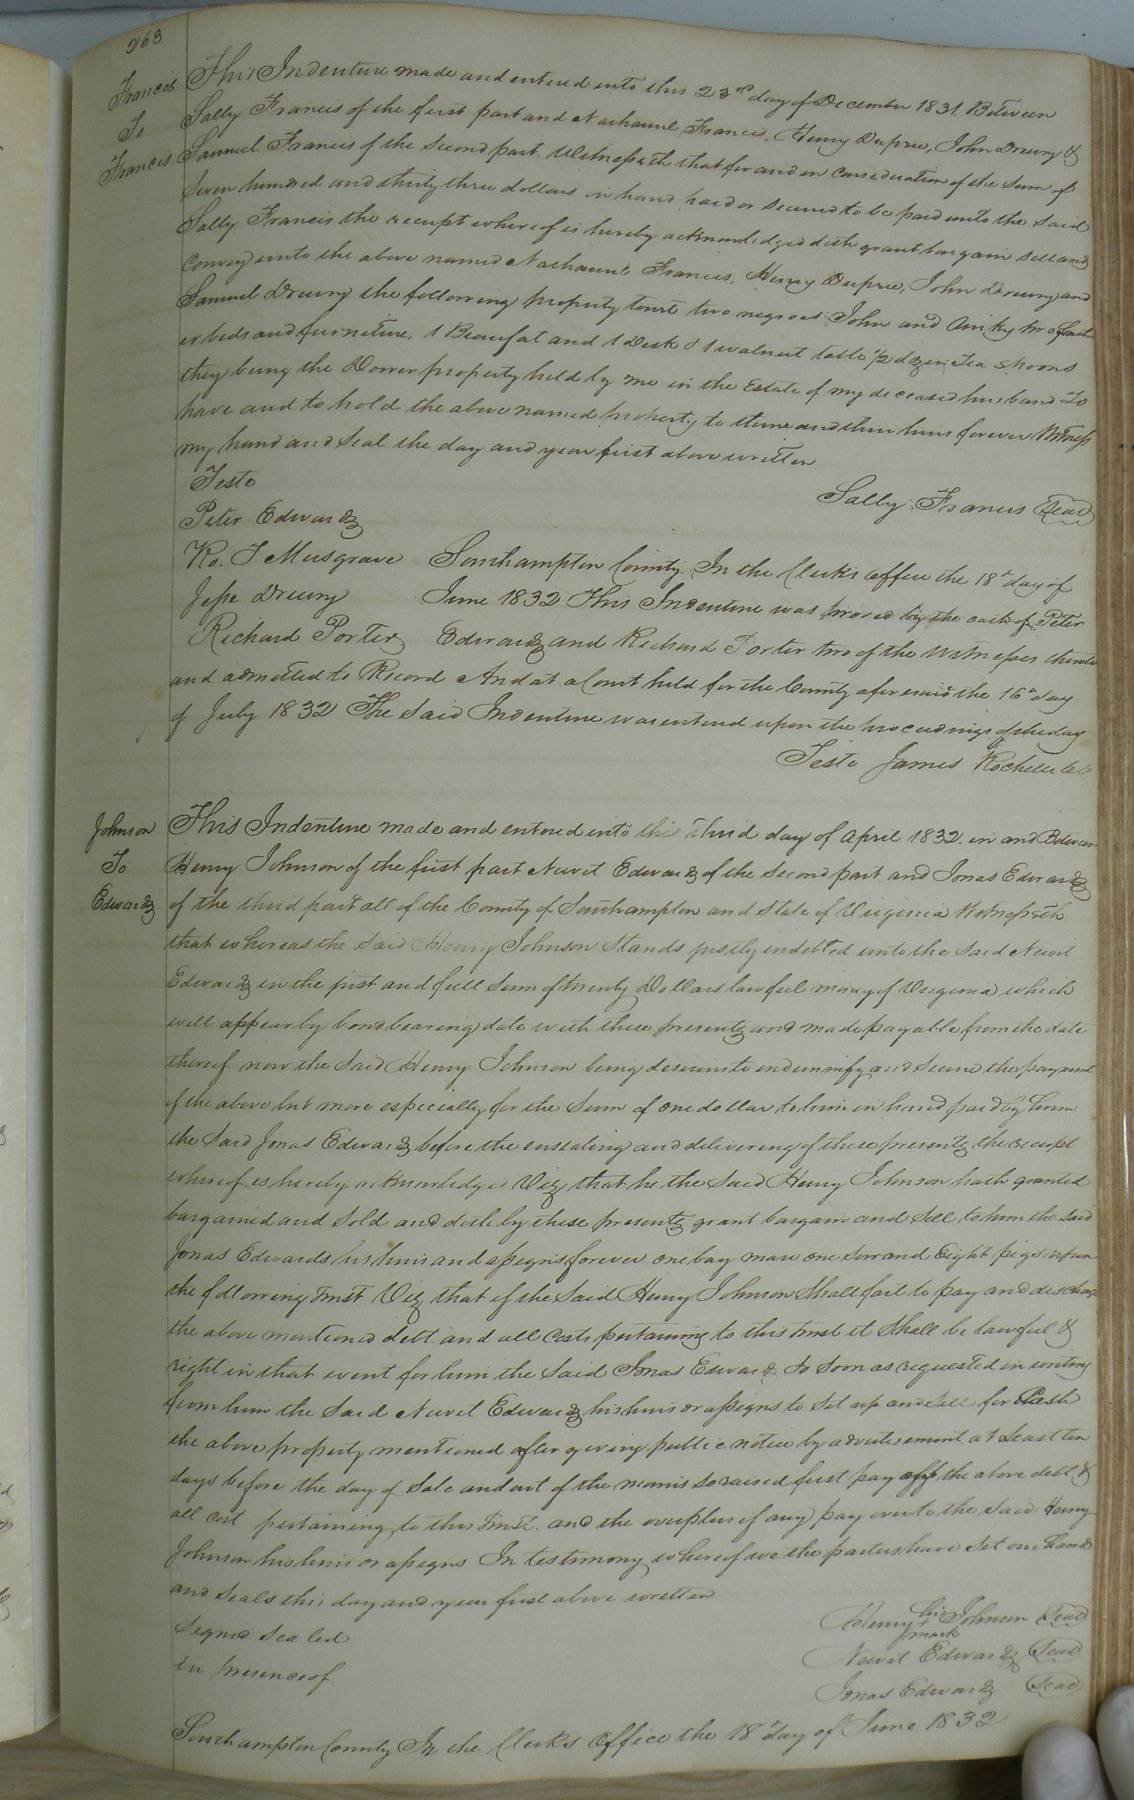 263
Francis
To
Francis
This Indenture made and entered into this 23rd day of December 1831 Between
Sally Francis of the first part and Nathaniel Francis, Henry Dupree, John Drewry &
Samuel Francis of the Second part. Witnesseth that for and in consideration of the Sum of
Seven hundred and thirty three dollars in hand paid or secured to be paid unto the Said
Sally Francis the receipt whereof is hereby acknowledged doth grant bargain sell and
convey unto the above named Nathaniel Francis, Henry Dupree, John Drewry and
Samuel Drewry the following property towit two negroes John and two feath
er beds and furniture, 1 Beaufat and 1 Desk & 1 walnut table 1/2 dozen Tea Spoons
they being the Dower property held by me in the Estate of my deceased husband To
have and to hold the above named property to them and their heirs forever Witness
my hand and Seal the day and year first above written
Sally Francis Seal
Teste
Peter Edwards
Ro. T Musgrave
Jesse Drewry
Richard Porter
Southampton County. In the Clerks office the 18th day of
June 1832 This Indenture was proved by the oath of Peter
Edwards and Richard Porter two of the Witnesses thereto
and admitted to Record And at a Court held for the County aforesaid the 16th day
of July 1832 The Said Indenture was entered upon the proceedings of the day
Teste James Rochelle
Johnson
To
Edwards
This Indenture made and entered into this third day of April 1832. in and Between
Henry Johnson of the first part Newit Edwards of the Second part and Jonas Edwards
of the third part all of the County of Southampton and State of Virginia Witnesseth
that whereas the Said Henry Johnson Stands justly indebted unto the Said Newit
Edwards in the just and full Sum of twenty Dollars lawful money of Virginia which
will appear by bond bearing date with these presents and made payable from the date
thereof now the Said Henry Johnson being desirous to indemnify and Secure the payment
of the above but more especially for the Sum of one dollar to him in hand paid by him
the Said Jonas Edwards before the ensealing and delivering of these presents the receipt
whereof is hereby acknowledged Viz that he the Said Henry Johnson hath granted
bargained and Sold and doth by these presents grant bargain and Sell to him the Said
Jonas Edwards his heirs and assigns forever one bay mare one Sow and Eight pigs upon
the following trust Viz that if the Said Henry Johnson Shall fail to pay and discharge
the above mentioned debt and all Costs pertaining to this trust it Shall be lawful &
right in that event for him the Said Jonas Edwards So Soon as requested in writing
from him the Said Newit Edwards his heirs or assigns to Set up and sell for Cash
the above property mentioned after giving public notice by advertisement at Least ten
days before the day of Sale and out of the monies so raised first pay off the above debt &
all cost pertaining to this trust. and the overplus if any pay over to the Said Henry
Johnson his heirs or assigns In testimony whereof we the parties have Set our hands
and Seals this day and year first above written
Signed Sealed
in presence of
Henry his + mark Johnson Seal
Newit Edwards Seal
Jonas Edwards Seal
Southampton County In the Clerks Office the 18th day of June 1832